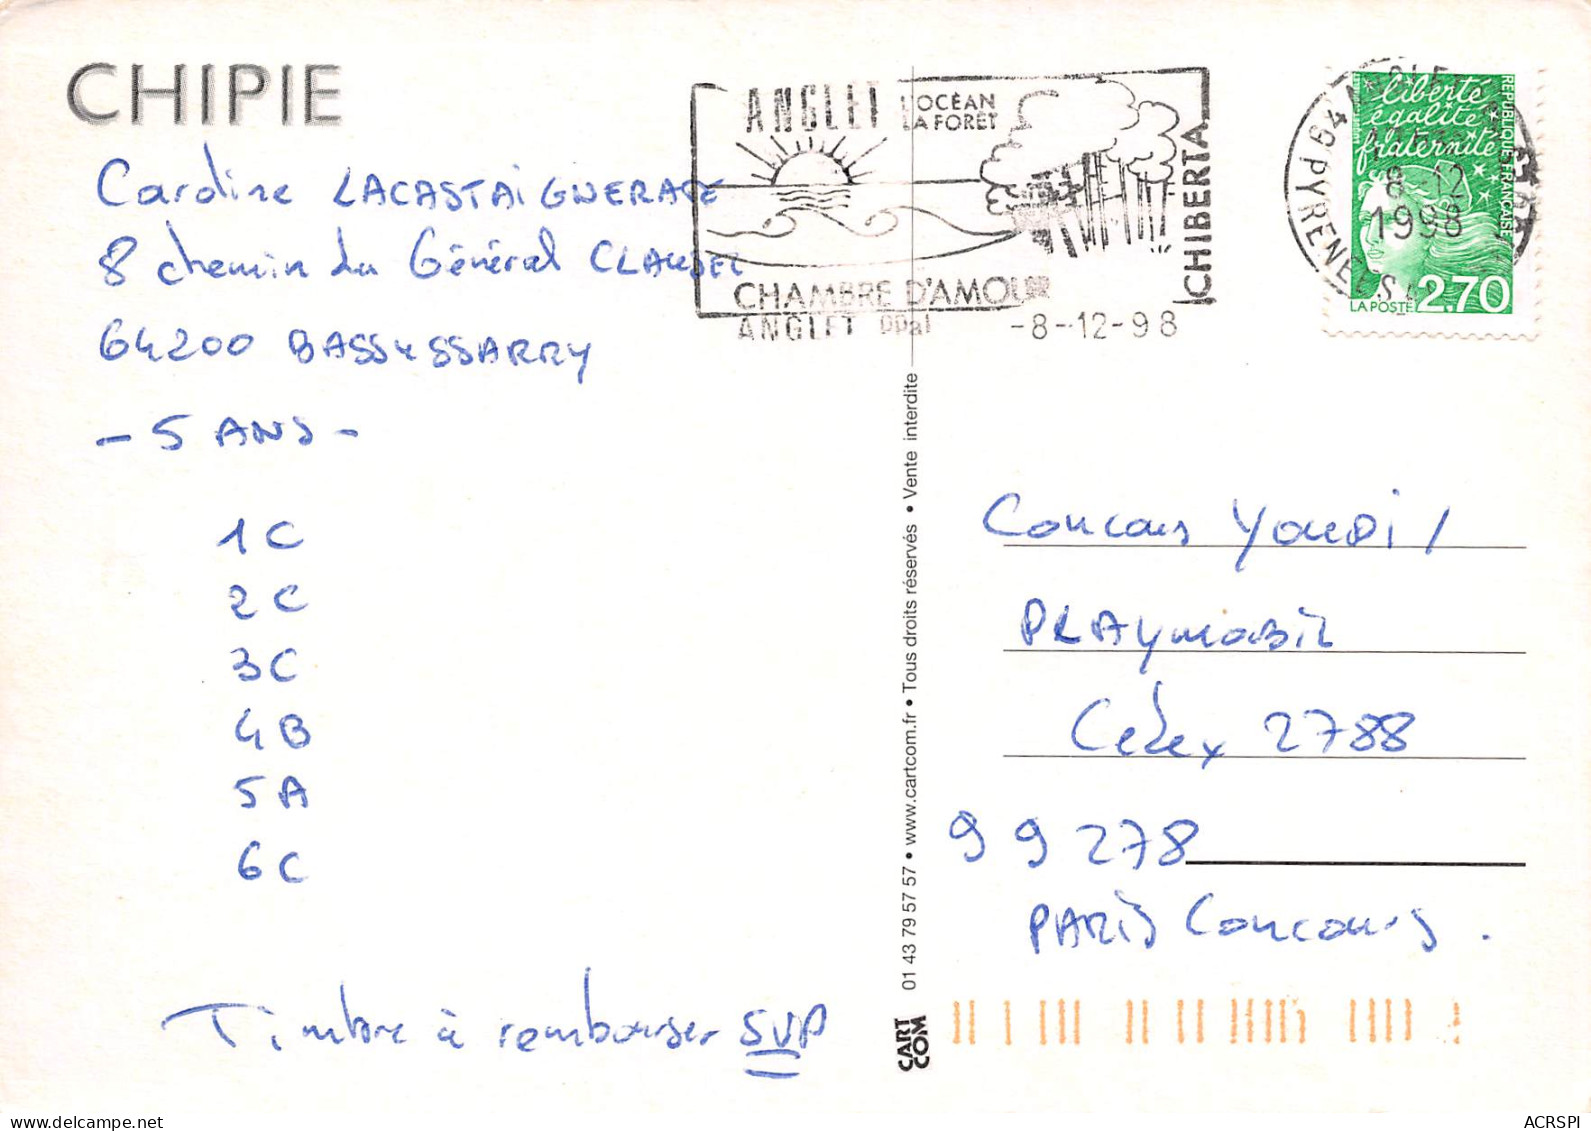 CHIPIE
Caroline LACASTAIGNERATE
8 chemin du Général CLAUSEL
64200 BASSUSSARRY
- 5 ANS -
1C
2C
3C
4B
5A
6C
Timbre à rembourser SVP
ANGLET L'OCÉAN
LA FORÊT
CHIBERTA
CHAMBRE D'AMOUR
ANGLET ppal
-8-12-98
64 ANGLET
8-12
1998
PYRENEES
liberte
égalité
fraternité
REPUBLIQUE FRANÇAISE
LA POSTE 2,70
01 43 79 57 57 • www.cartcom.fr • Tous droits réservés • Vente interdite
CART
COM
Concours YOUPI /
PLAYMOBIL
Cedex 2788
99278
PARIS Concours.
delcampe.net
ACRSPI